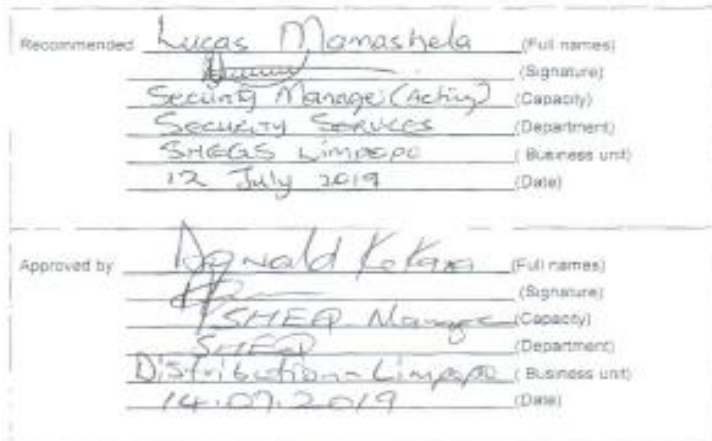 Recommended Lucas Mamashela (Full names)
(Signature)
Security Manager (Acting) (Capacity)
Security Services (Department)
SHEQS Limpopo ( Business unit)
12 July 2019 (Date)
Approved by Donald (Full names)
(Signature)
SHEQ Manager (Capacity)
SHEQ (Department)
Distribution - Limpopo ( Business unit)
14.07.2019 (Date)